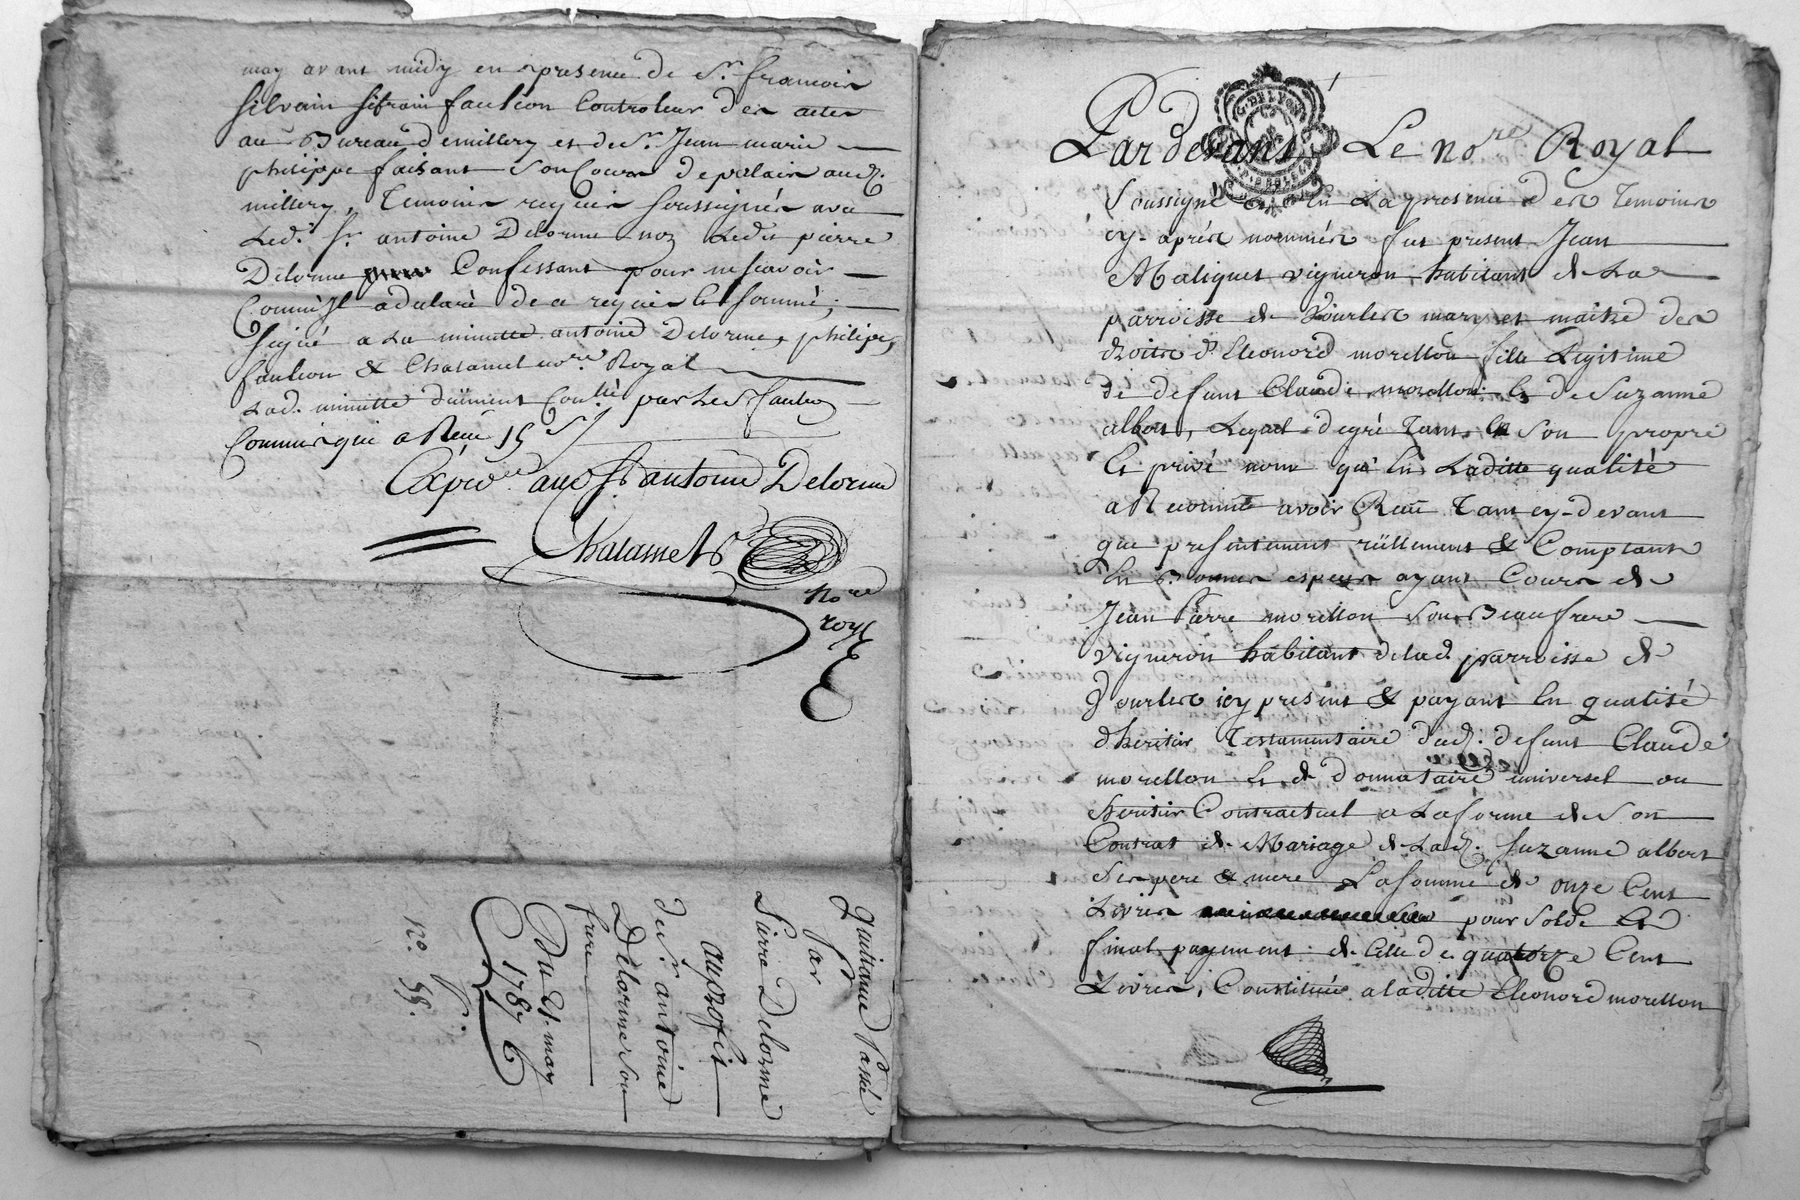 may avant midy en presence de Sr. francois
silvain sifrain faulcon Controleur des actes
au Bureau d'emillery et de Sr. Jean marie
philippe faisant Son Cours de palais aud.
millery, Temoins requis soussignés avec
Led. Sr. antoine Delorme non Ledit pierre
Delorme Confessant pour ne scavoir
Comme Il a declaré de ce requis & sommé,
signé a La minutte antoine Delorme, philippe,
faulcon & Chatamet nore. Royal
Lad. minutte düement Conllé par Led. Sr. faulcon
Commis qui a Reçu 15 s
Expedn. aud. Sr. antoine Delorme
Chalamet
nore
royl
quittance Passé
par
Pierre Delorme
au profit
du Sr. antoine
Delorme son
frere
Du 21 may
1787
no. 55.
G. DE LYON
Pardevant Le nore Royal
soussigné & En La presence des Temoins
cy-aprés nommés fut present Jean
Maliquet vigneron habitant de La
parroisse de Vourles mary et maitre des
droits d'Eleonord morellon fille Legitime
de defunt Claude morellon & de Suzanne
albert, Lequel de gré Tant En son propre
& privé nom qu'En Laditte qualité
a Reconnu avoir Reçu Tant cy-devant
que presentement réellement & Comptant
En Bonnes especes ayant Cours de
Jean Pierre morellon Son Beaufrere
vigneron habitant de lad. parroisse de
Vourles icy present & payant En qualité
d'heritier Testamentaire dud. defunt Claude
morellon & de donnataire universel ou
heritier Contractuel a La forme de Son
Contrat de Mariage de Lad. Suzanne albert
Ses pere & mere La somme de onze Cent
Livres pour Solde &
final payement de Celle de quatorze Cent
Livres, Constituée a laditte Eleonord morellon